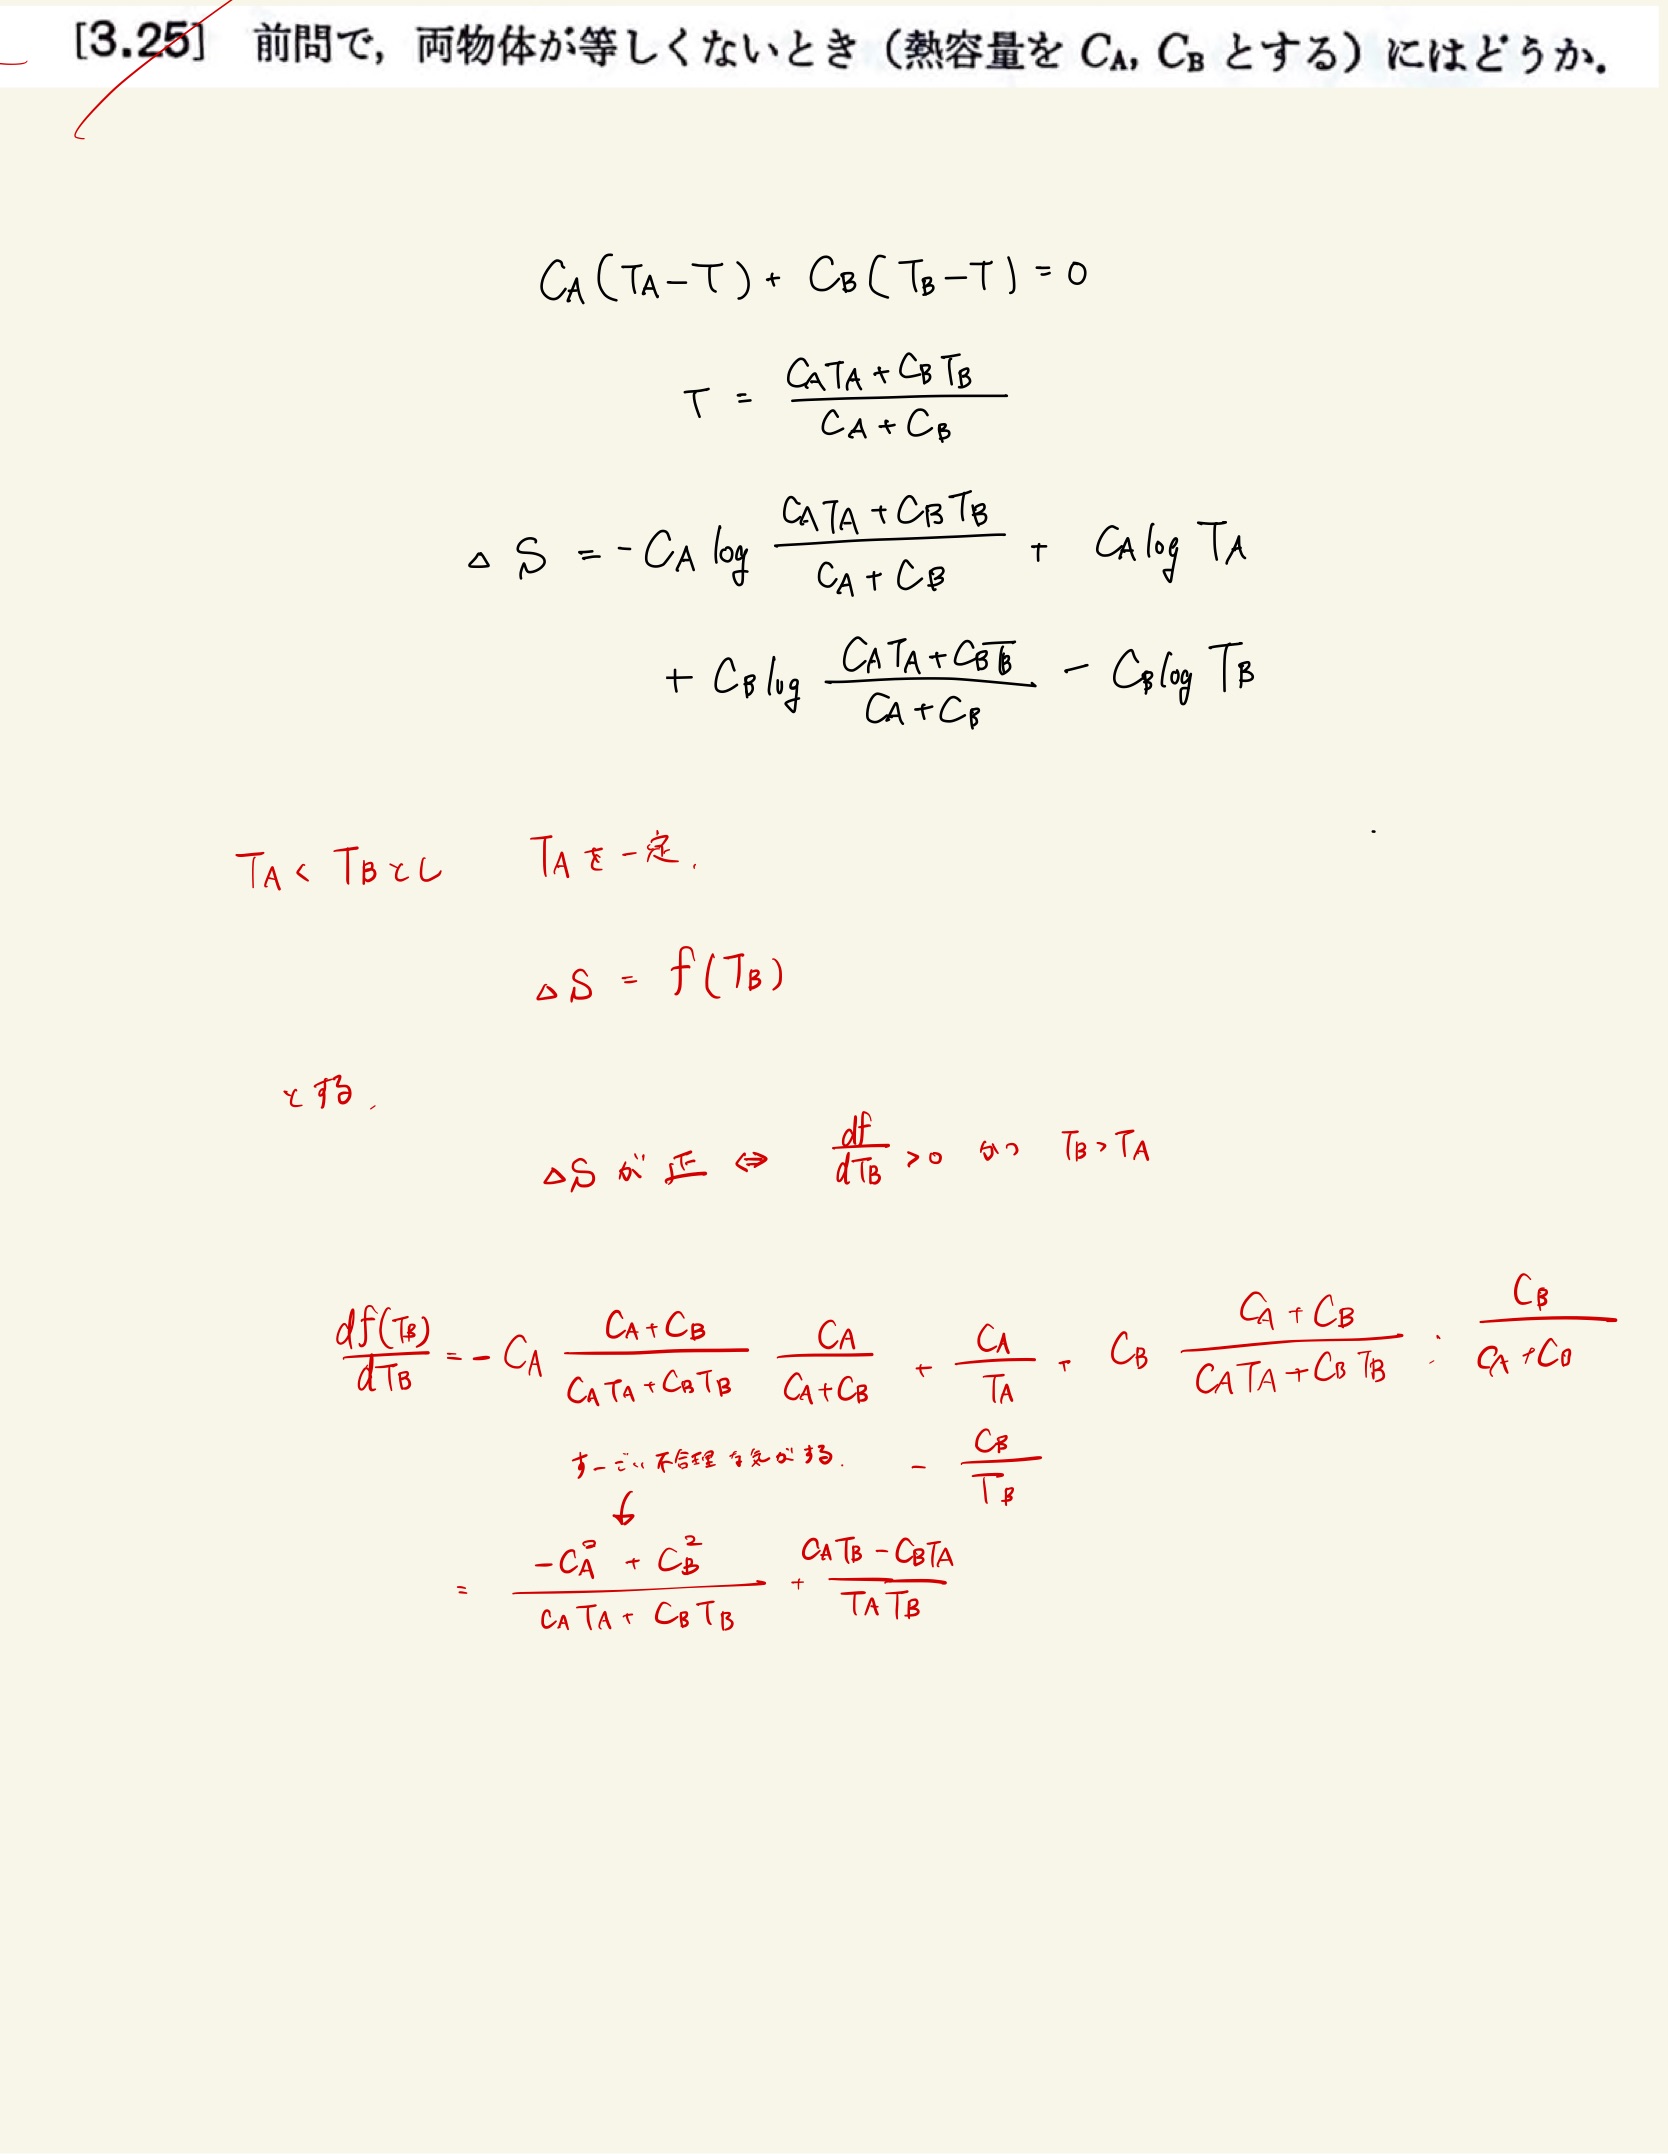 [3.25] 前問で，両物体が等しくないとき（熱容量を C_A, C_B とする）にはどうか．
C_A(T_A-T) + C_B(T_B-T) = 0
T = \frac{C_A T_A + C_B T_B}{C_A + C_B}
△S = -C_A log \frac{C_A T_A + C_B T_B}{C_A + C_B} + C_A log T_A
+ C_B log \frac{C_A T_A + C_B T_B}{C_A + C_B} - C_B log T_B
T_A < T_B とし T_A を一定.
△S = f(T_B)
とする.
△S が正 ⇔ \frac{df}{dT_B} > 0 かつ T_B > T_A
\frac{df(T_B)}{dT_B} = -C_A \frac{C_A + C_B}{C_A T_A + C_B T_B} \frac{C_A}{C_A + C_B} + \frac{C_A}{T_A} + C_B \frac{C_A + C_B}{C_A T_A + C_B T_B} : \frac{C_B}{C_A + C_B}
すーごい不合理な気がする. - \frac{C_B}{T_B}
= \frac{-C_A^2 + C_B^2}{C_A T_A + C_B T_B} + \frac{C_A T_B - C_B T_A}{T_A T_B}